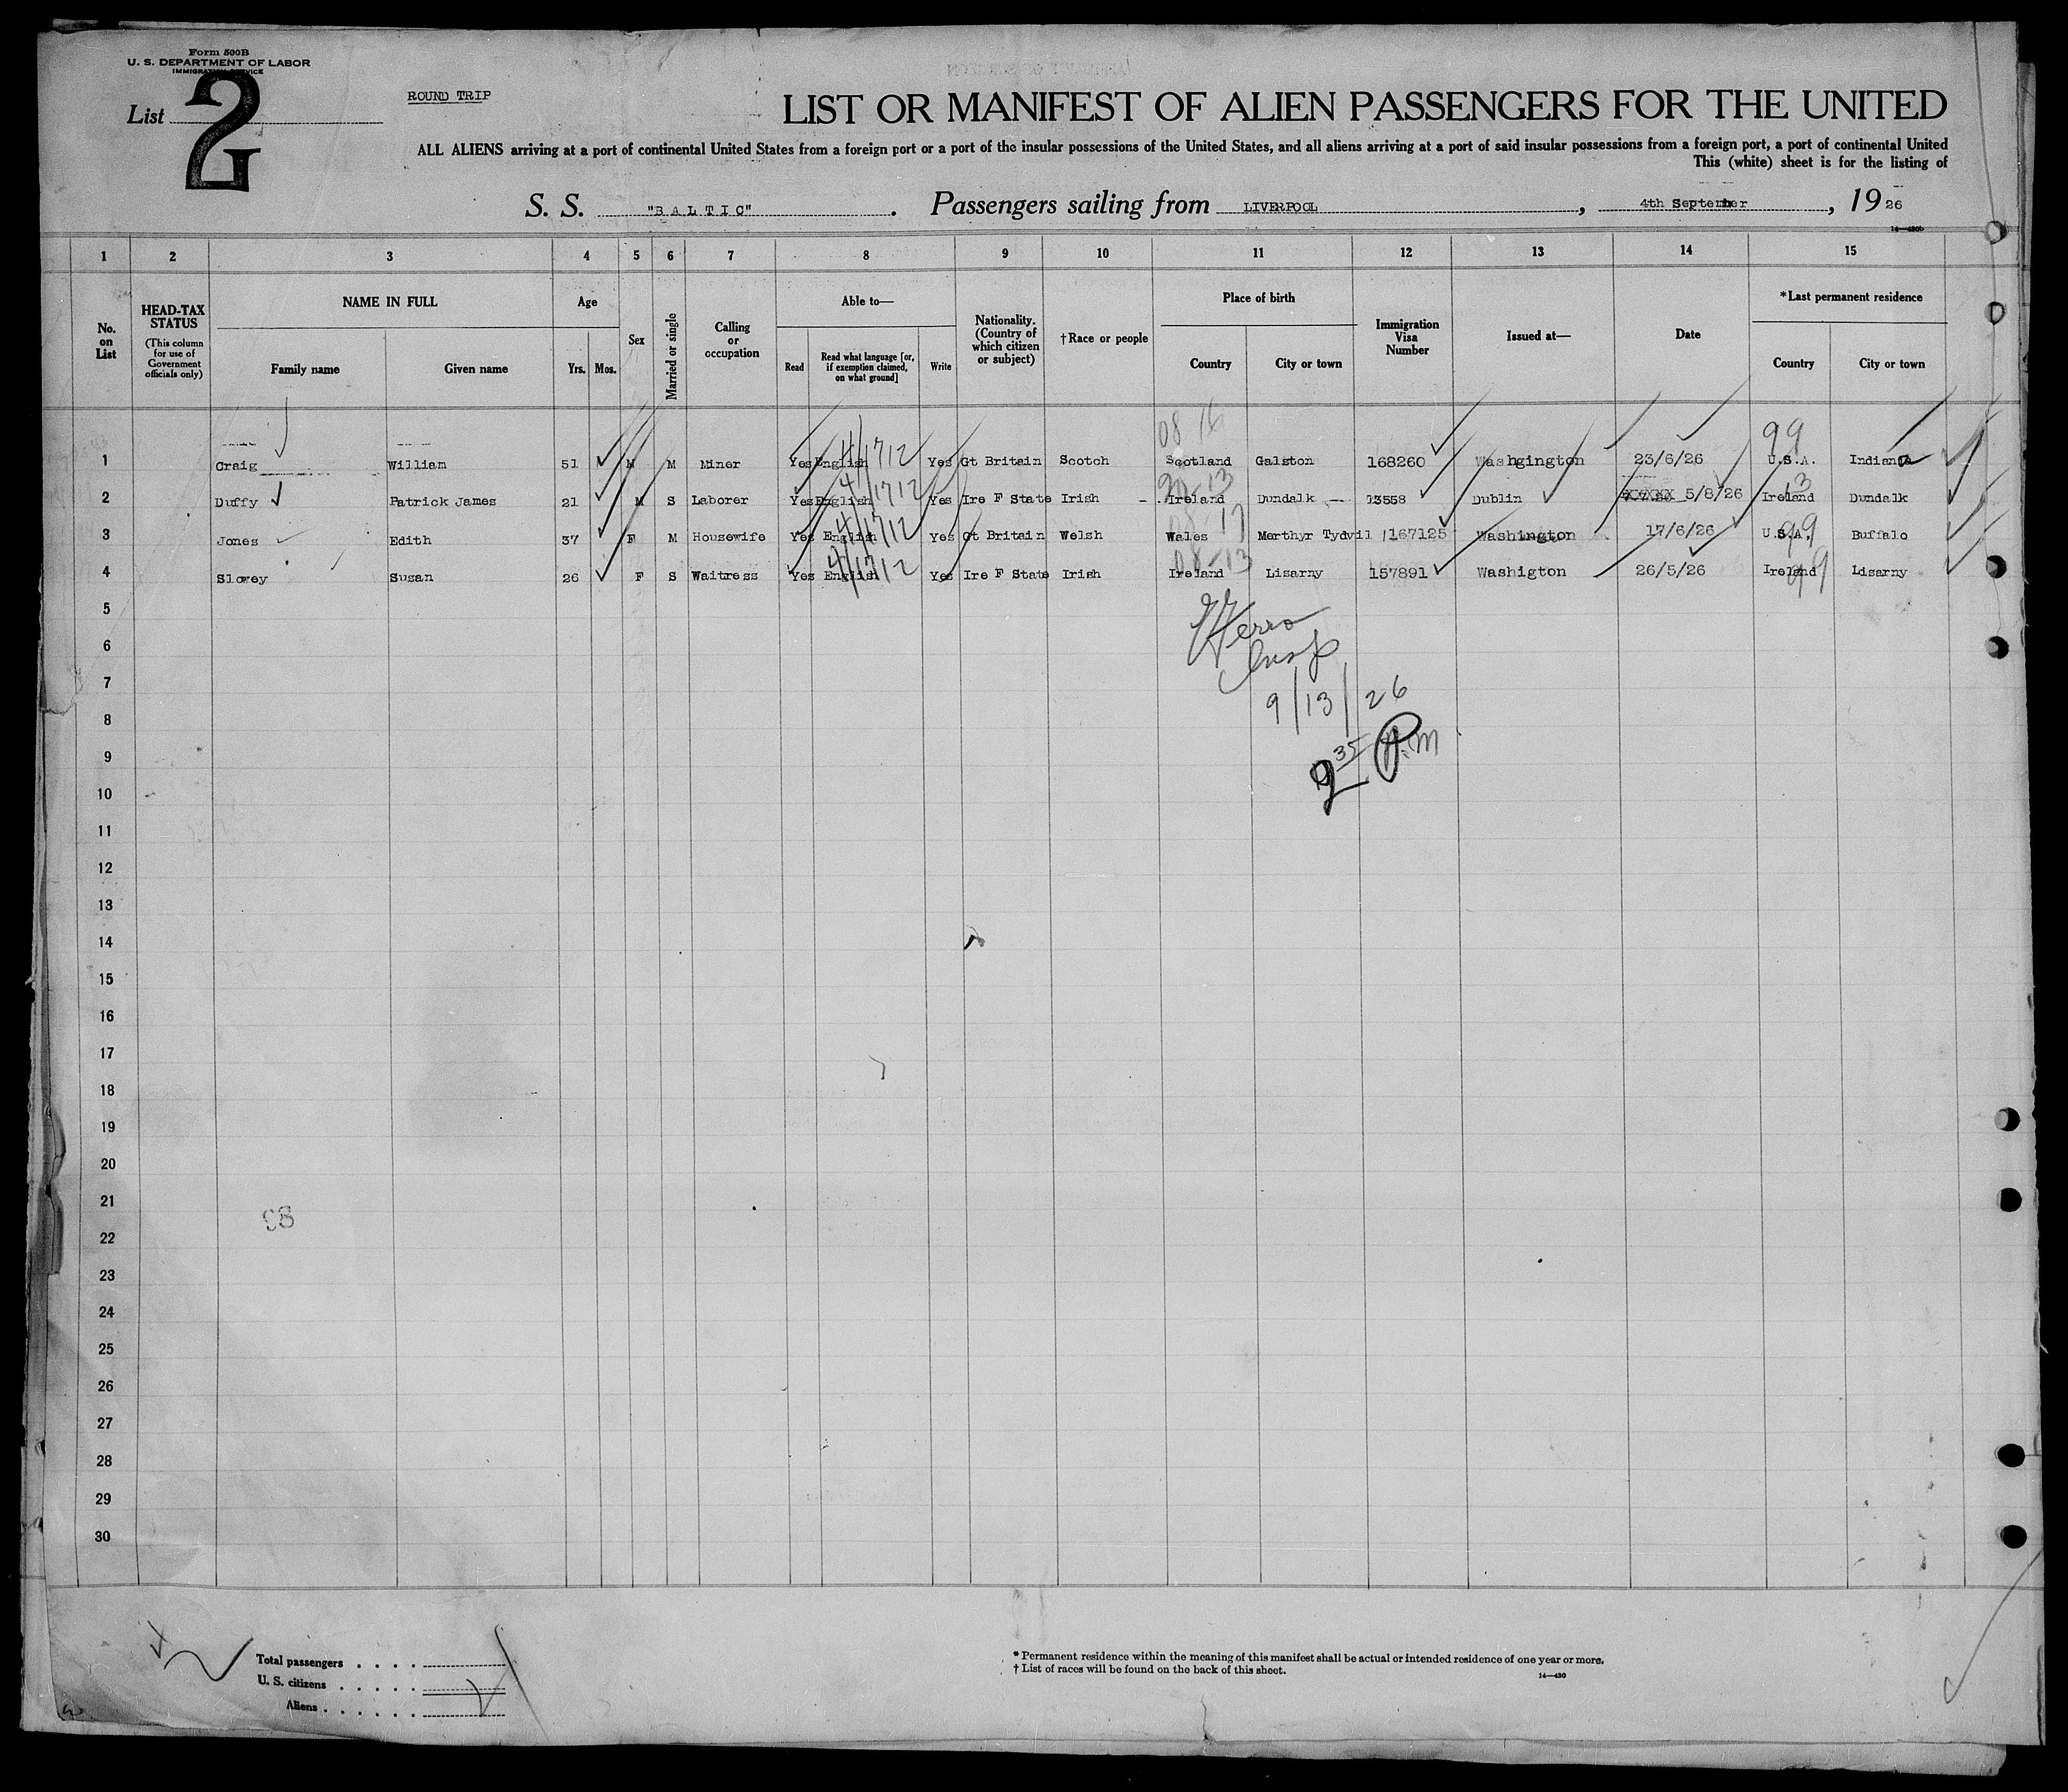 Form 500B
U. S. DEPARTMENT OF LABOR
IMMIGRATION SERVICE
List 2
ROUND TRIP
LIST OR MANIFEST OF ALIEN PASSENGERS FOR THE UNITED
ALL ALIENS arriving at a port of continental United States from a foreign port or a port of the insular possessions of the United States, and all aliens arriving at a port of said insular possessions from a foreign port, a port of continental United
This (white) sheet is for the listing of
S. S. "BALTIC". Passengers sailing from LIVERPOOL, 4th September, 1926
14—430b
1 2 3 4 5 6 7 8 9 10 11 12 13 14 15
No. on List
HEAD-TAX STATUS (This column for use of Government officials only)
NAME IN FULL Family name Given name
Age Yrs. Mos.
Sex
Married or single
Calling or occupation
Able to— Read Read what language [or, if exemption claimed, on what ground] Write
Nationality. (Country of which citizen or subject)
†Race or people
Place of birth Country City or town
Immigration Visa Number
Issued at—
Date
*Last permanent residence Country City or town
08 16 99
1 Craig William 51 M M Miner Yes English 4/1712 Yes Gt Britain Scotch Scotland Galston 168260 Washgington 23/6/26 U.S.A. Indiana
2 Duffy Patrick James 21 M S Laborer Yes English 4/1712 Yes Ire F State Irish - Ireland Dundalk -- 13558 Dublin XXXXXX 5/8/26 Ireland 13 Dundalk
3 Jones Edith 37 F M Housewife Yes English 4/1712 Yes Gt Britain Welsh Wales Merthyr Tydvil 167125 Washington 17/6/26 U.S.A. 99 Buffalo
4 Slowey Susan 26 F S Waitress Yes English 4/1712 Yes Ire F State Irish Ireland 08-13 Lisarny 157891 Washigton 26/5/26 Ireland 99 Lisarny
5
6
Insp
7
9/13/26
8
9
2 35 P.M
10
11
12
13
14
15
16
17
18
19
20
21
22
23
24
25
26
27
28
29
30
Total passengers . . . .
U. S. citizens . . . . .
Aliens . . . . . .
* Permanent residence within the meaning of this manifest shall be actual or intended residence of one year or more.
† List of races will be found on the back of this sheet.
14—430